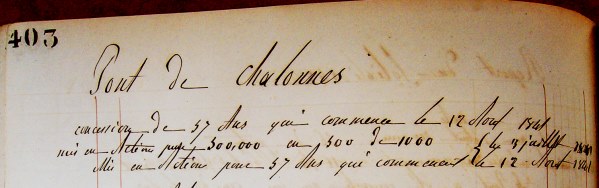 403
Pont de Chalonnes
concession de 57 Ans qui commence le 12 Aout 1841
mis en Action pour 500,000 en 500 de 1000 le 15 juillet
Mis en Action pour 57 Ans qui commencent le 12 Aout 1841